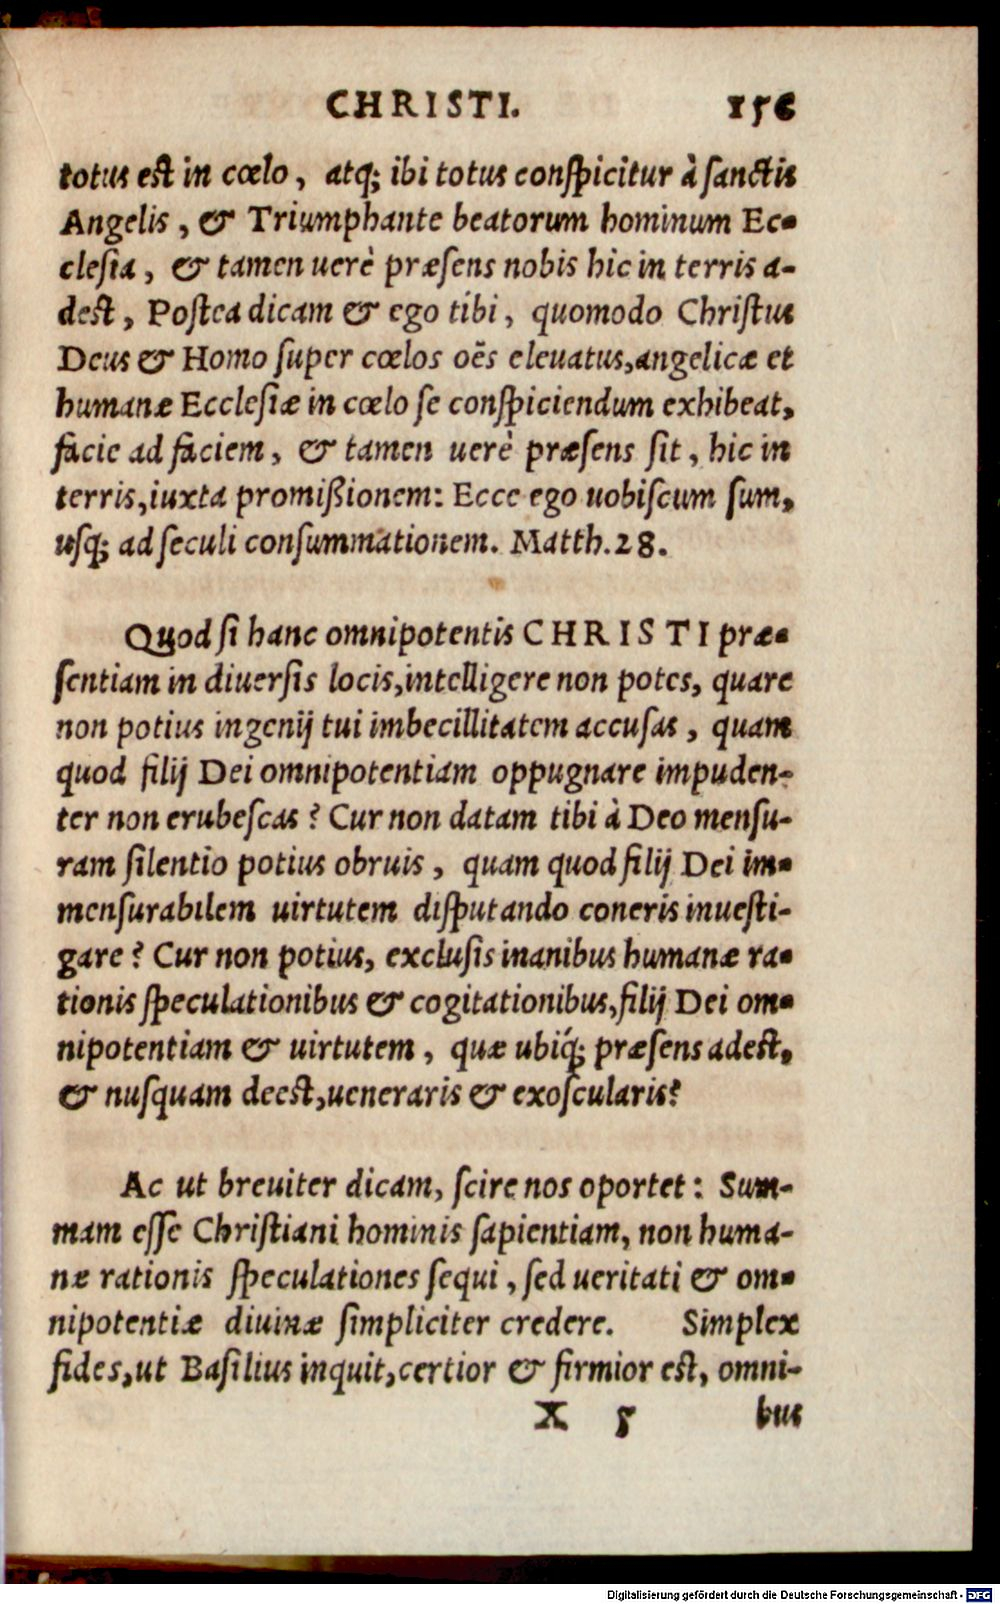 CHRISTI. 156
totus est in cœlo, atq; ibi totus conspicitur à sanctis
Angelis, & Triumphante beatorum hominum Ec-
clesia, & tamen uerè præsens nobis hic in terris a-
dest, Postea dicam & ego tibi, quomodo Christus
Deus & Homo super cœlos oẽs eleuatus, angelicæ et
humanæ Ecclesiæ in cœlo se conspiciendum exhibeat,
facie ad faciem, & tamen uerè præsens sit, hic in
terris, iuxta promißionem: Ecce ego uobiscum sum,
usq; ad seculi consummationem. Matth. 28.
Quod si hanc omnipotentis CHRISTI præ-
sentiam in diuersis locis, intelligere non potes, quare
non potius ingenij tui imbecillitatem accusas, quam
quod filij Dei omnipotentiam oppugnare impuden-
ter non erubescas? Cur non datam tibi à Deo mensu-
ram silentio potius obruis, quam quod filij Dei im-
mensurabilem uirtutem disputando coneris inuesti-
gare? Cur non potius, exclusis inanibus humanæ ra-
tionis speculationibus & cogitationibus, filij Dei om-
nipotentiam & uirtutem, quæ ubiq́; præsens adest,
& nusquam deest, ueneraris & exoscularis?
Ac ut breuiter dicam, scire nos oportet: Sum-
mam esse Christiani hominis sapientiam, non huma-
næ rationis speculationes sequi, sed ueritati & om-
nipotentiæ diuinæ simpliciter credere. Simplex
fides, ut Basilius inquit, certior & firmior est, omni-
X 5 bus
Digitalisierung gefördert durch die Deutsche Forschungsgemeinschaft - DFG